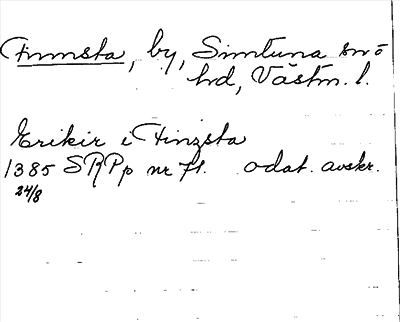 Finnsta, by, Simtuna sn ö
hd, Västm. l.
Erikir i Finzsta
1385 SRPp nr 71. odat. avskr.
24/8